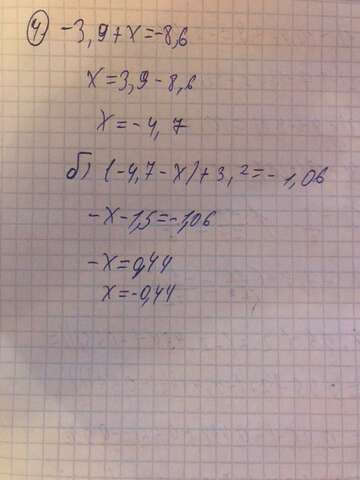 4) -3,9+x=-8,6
x=3,9-8,6
x=-4,7
б) (-4,7-x)+3,2=-1,06
-x-1,5=-1,06
-x=0,44
x=-0,44